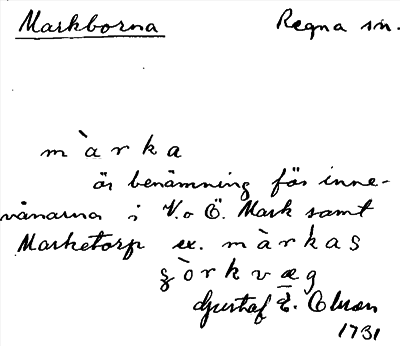 Markborna Regna sn.
màrka
är benämning för inne-
vånarna i V. o Ö. Mark samt
Marketorp ex. màrkas
òrkvæg
Gustaf E. Olsson
1731